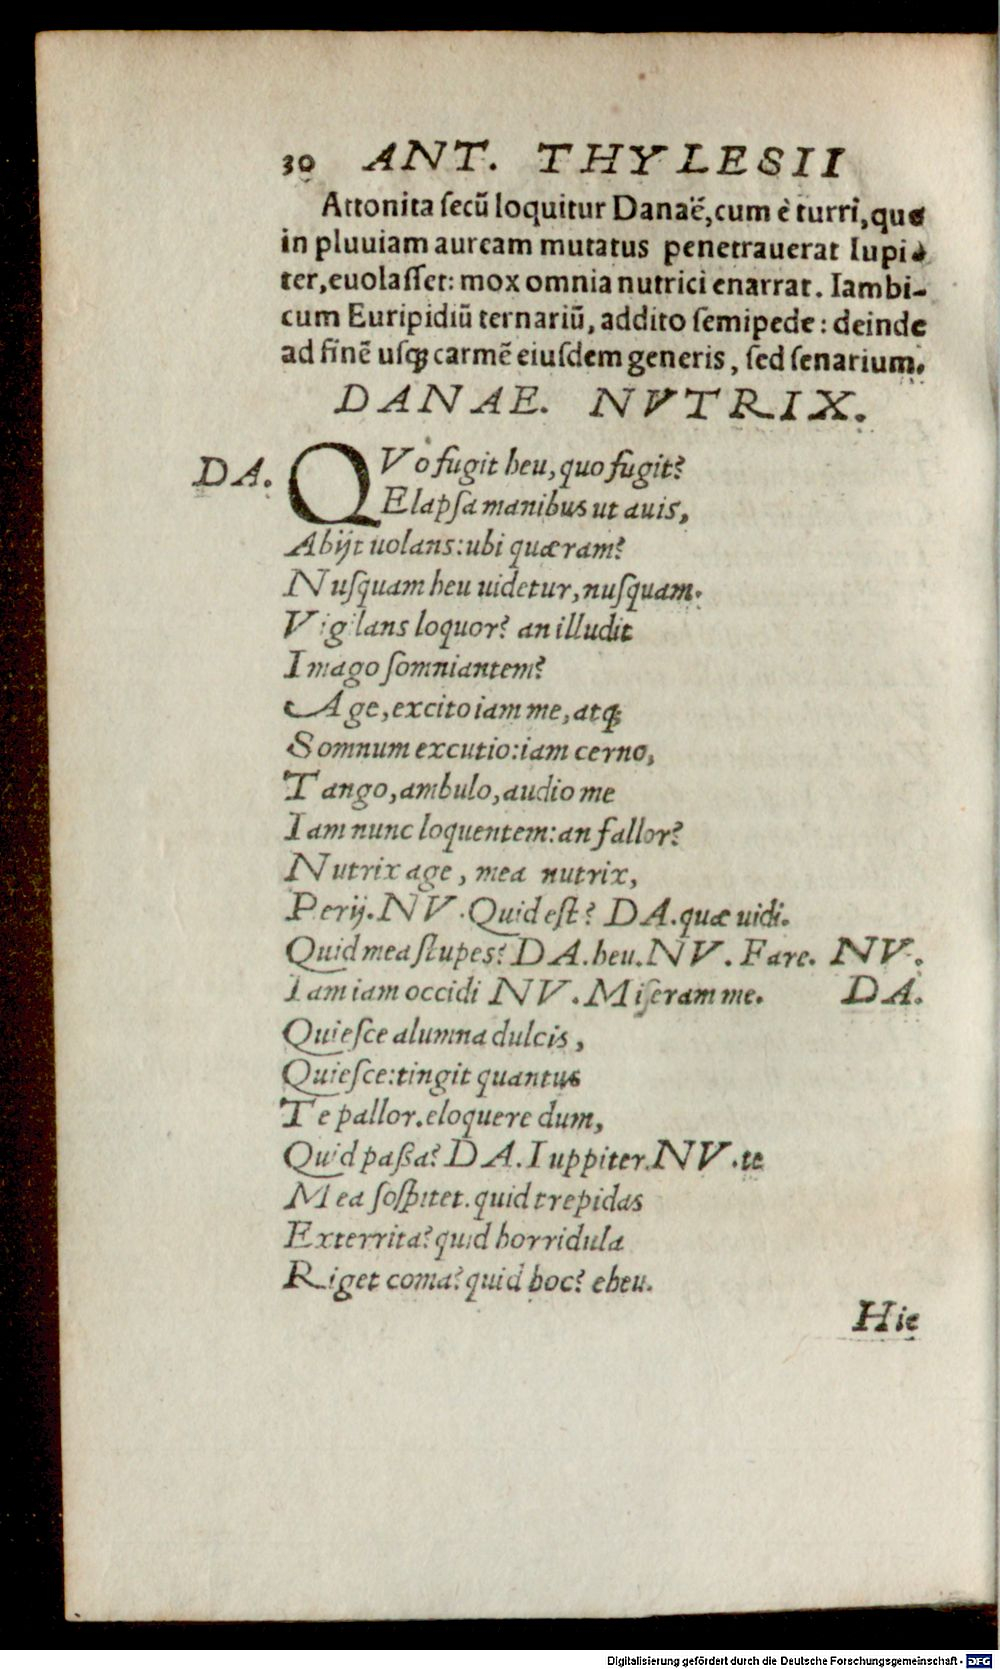 30 ANT. THYLESII
Attonita ſecũ loquitur Danaë, cum è turri, quo
in pluuiam auream mutatus penetrauerat Iupi-
ter, euolaſſet: mox omnia nutrici enarrat. Iambi-
cum Euripidiũ ternariũ, addito ſemipede: deinde
ad finẽ uſqꝫ carmẽ eiuſdem generis, ſed ſenarium.
DANAE. NVTRIX.
DA. QVo fugit heu, quo fugit?
Elapſa manibus ut auis,
Abijt uolans: ubi quæram?
Nuſquam heu uidetur, nuſquam.
Vigilans loquor? an illudit
Imago ſomniantem?
Age, excito iam me, atqꝫ
Somnum excutio: iam cerno,
Tango, ambulo, audio me
Iam nunc loquentem: an fallor?
Nutrix age, mea nutrix,
Perij. NV. Quid eſt? DA. quæ uidi.
Quid mea ſtupes? DA. heu. NV. Fare. NV.
Iam iam occidi NV. Miſeram me. DA.
Quieſce alumna dulcis,
Quieſce: tingit quantus
Te pallor. eloquere dum,
Quid paßa? DA. Iuppiter. NV. te
Mea ſoſpitet. quid trepidas
Exterrita? quid horridula
Riget coma? quid hoc? eheu.
Hic
Digitalisierung gefördert durch die Deutsche Forschungsgemeinschaft - DFG